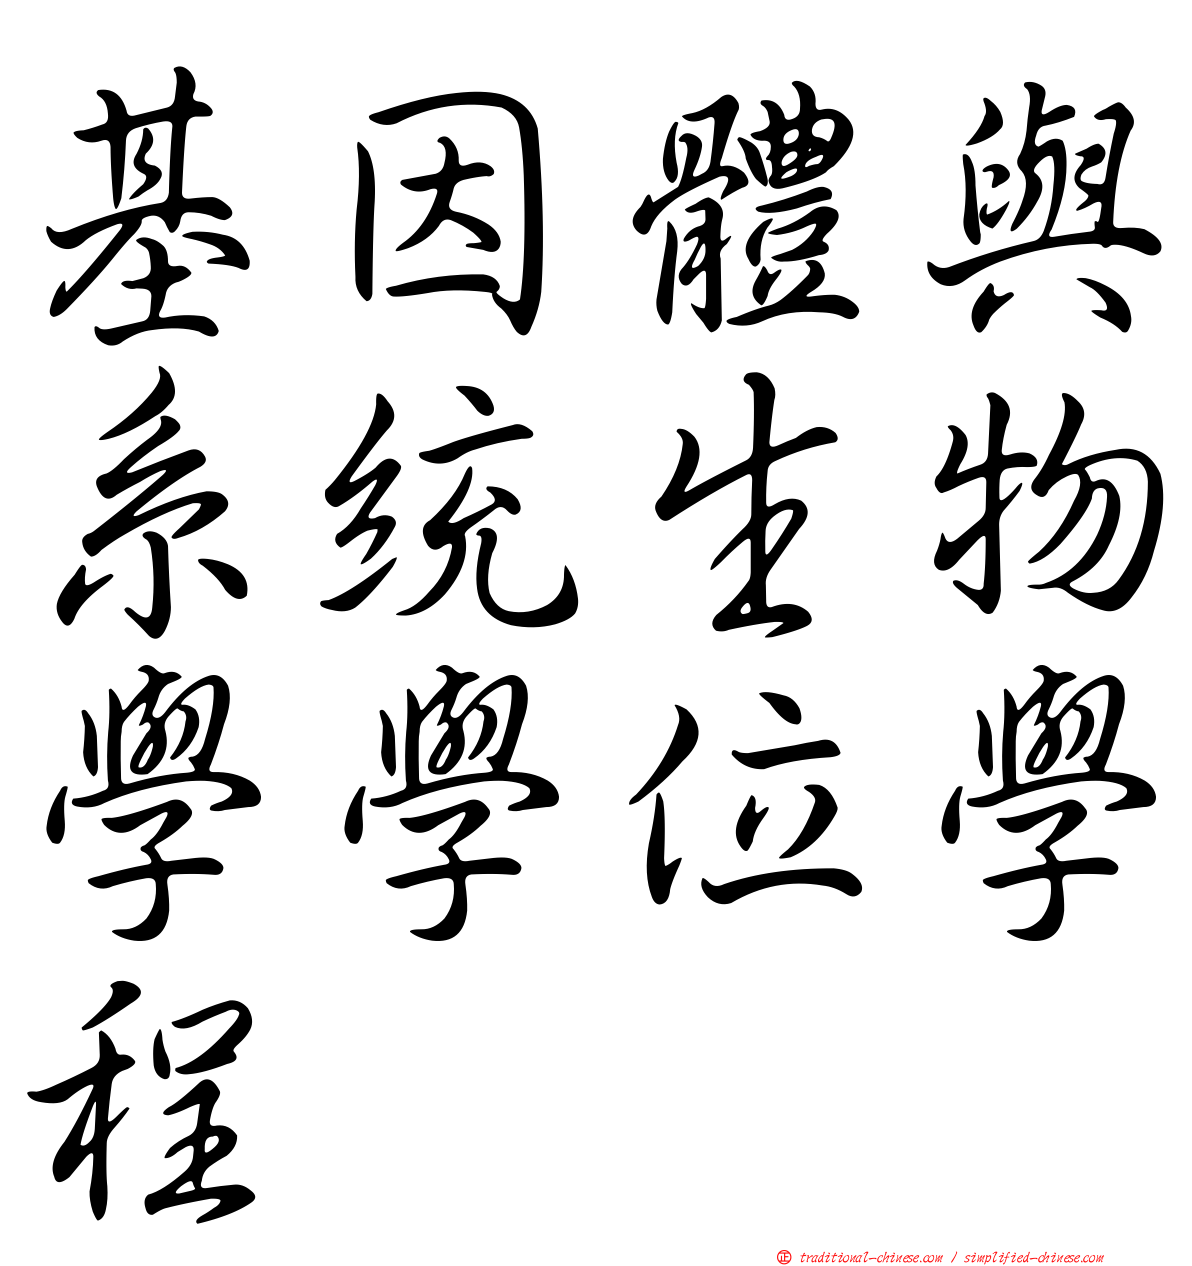 基因體與
系統生物
學學位學
程
正 traditional-chinese.com / simplified-chinese.com